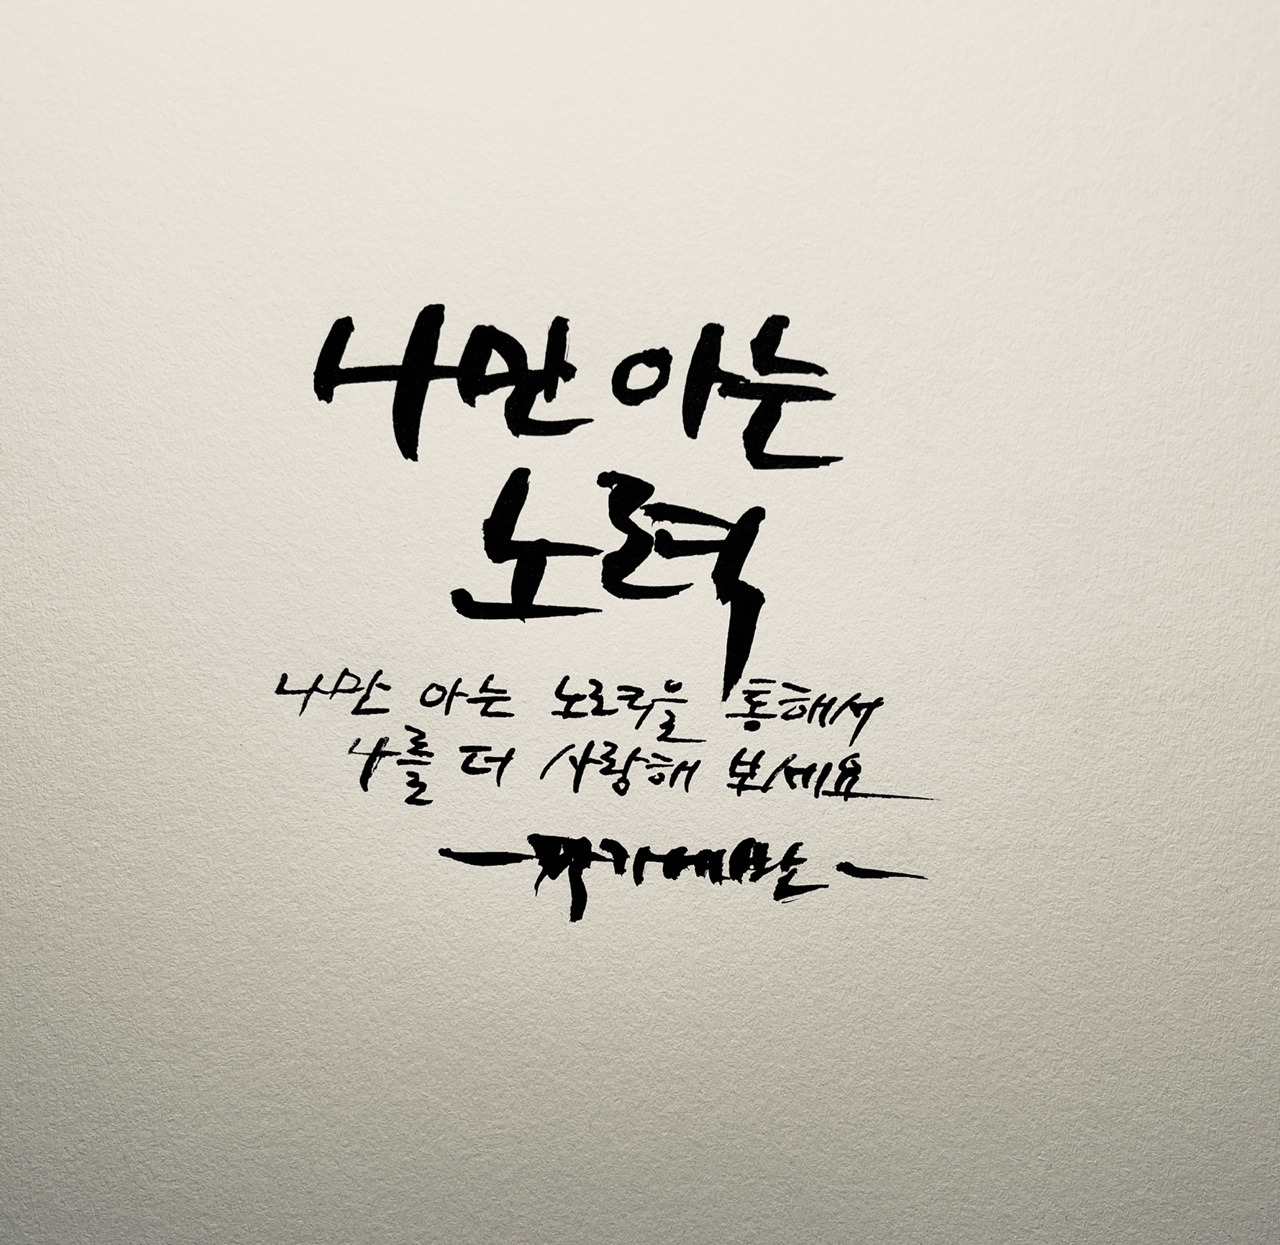 나만 아는
노력
나만 아는 노력을 통해서
나를 더 사랑해 보세요
작가